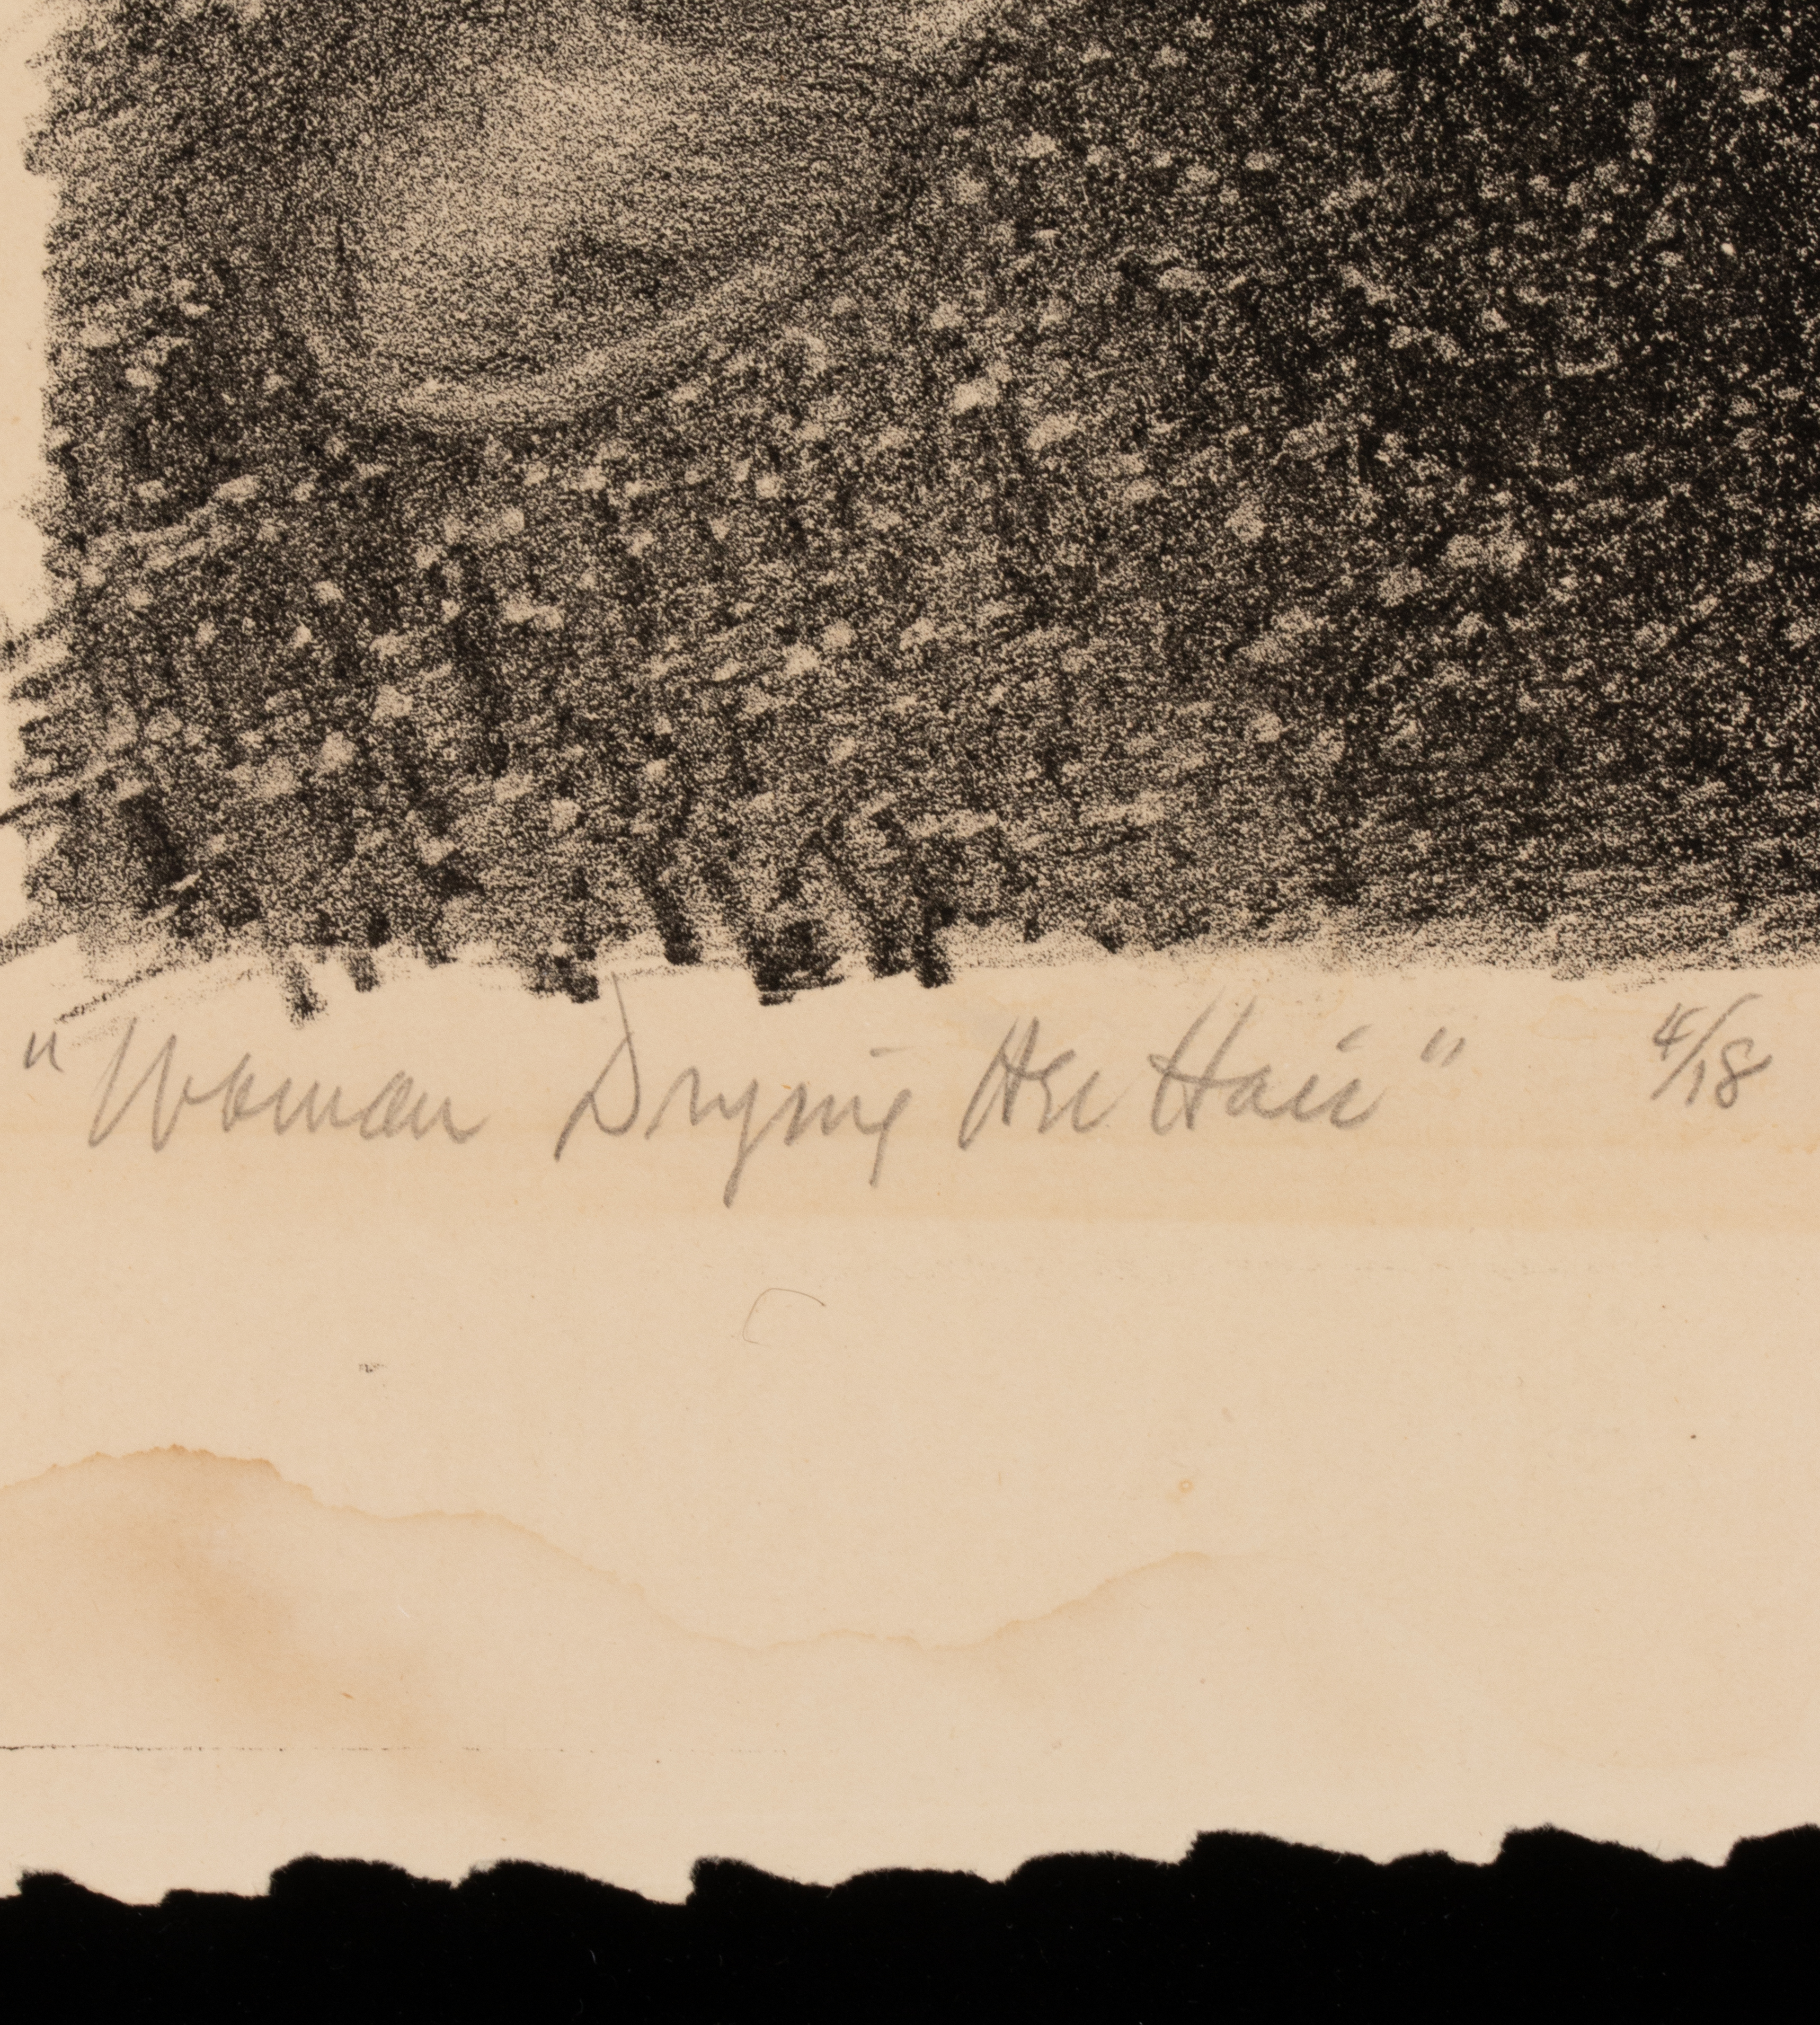 "Woman Drying Her Hair" 4/18